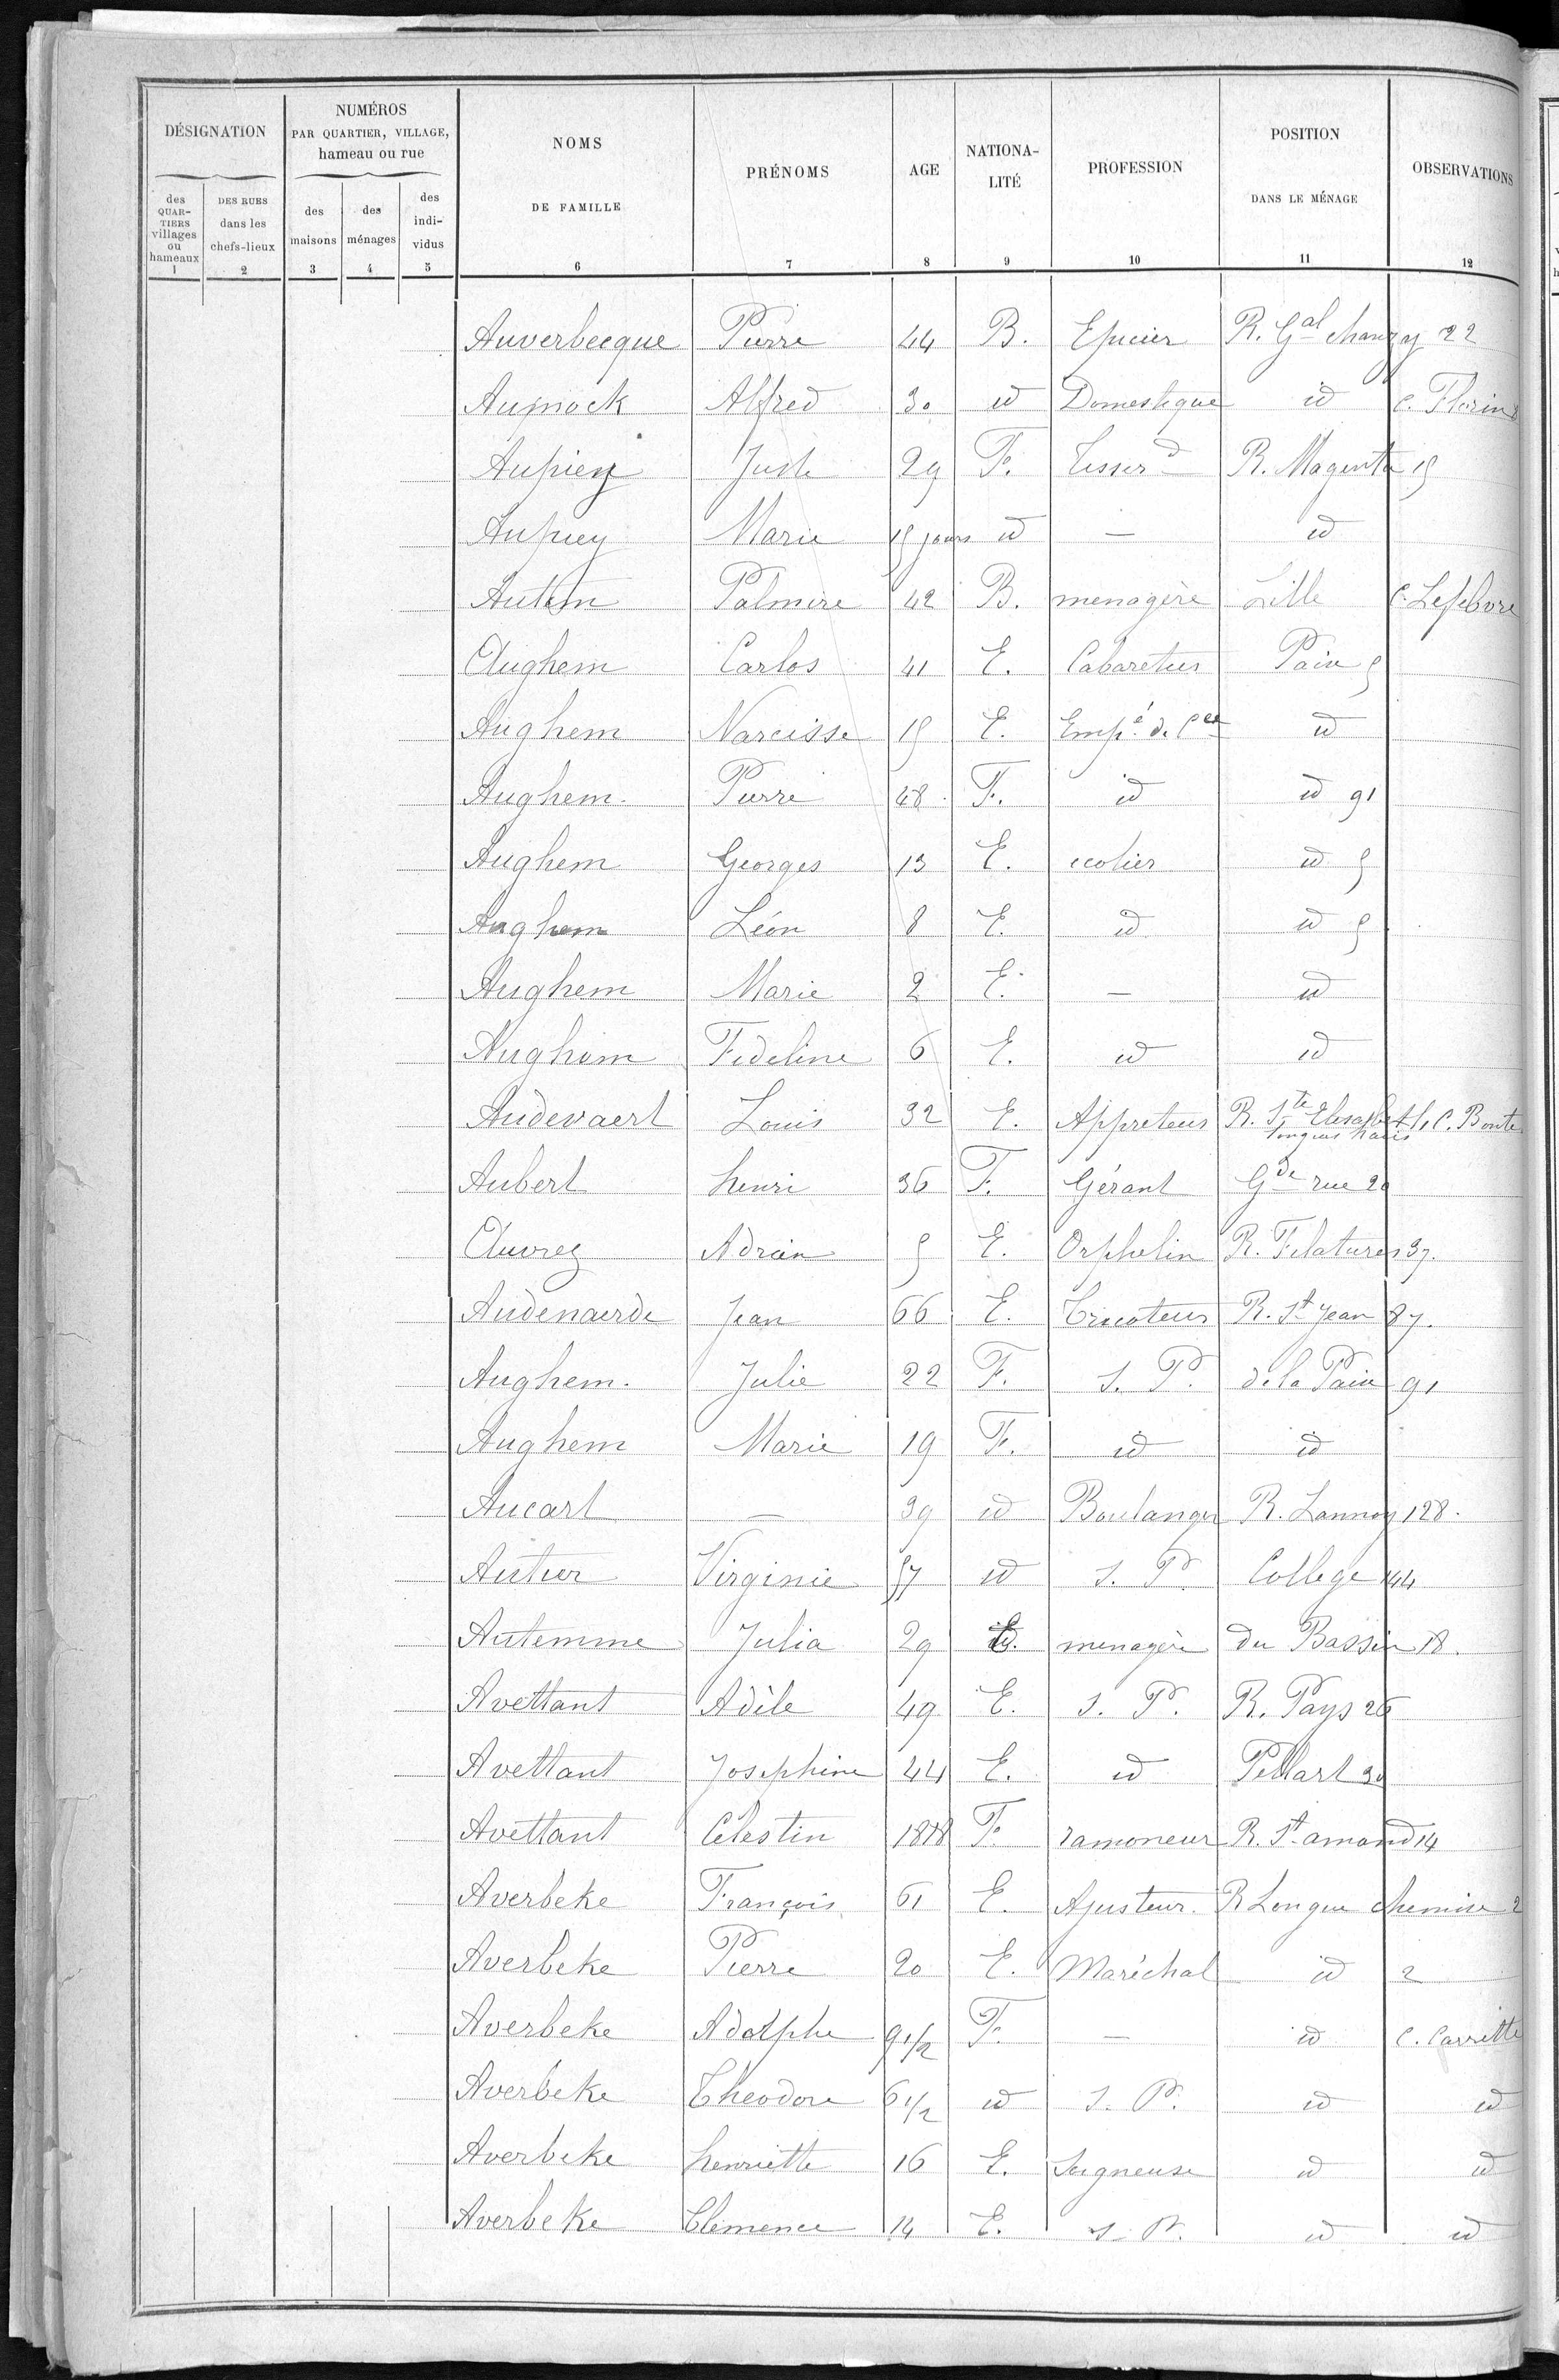 DÉSIGNATION
NUMÉROS
PAR QUARTIER, VILLAGE,
hameau ou rue
NOMS
DE FAMILLE
PRÉNOMS
AGE
NATIONA-
LITÉ
PROFESSION
POSITION
DANS LE MÉNAGE
OBSERVATIONS
des
QUAR-
TIERS
villages
ou
hameaux
DES RUES
dans les
chefs-lieux
des
maisons
des
ménages
des
indi-
vidus
1 2 3 4 5 6 7 8 9 10 11 12
Auverbecque Pierre 44 B. Epicier R. Gal chanzy 22
Alfred 30 id Domestique id C. Florin
Aupiez Juste 29 F. Tisserd R. Magenta 15
Aupiez Marie 15 jours id — id
Autem Palmire 42 B. menagère Lille C. Lefebvre
Aughem Carlos 41 E. Cabaretier Paix 5
Aughem Narcisse 15 E. Empé de Cce id
Aughem Pierre 48 F. id id 91
Aughem Georges 13 E. ecolier id 5
Aughem Léon 8 E. id id 5
Aughem Marie 2 E. — id
Aughem Fideline 6 E. id id
Audevaert Louis 32 E. Appreteur R. Ste Elisabeth, C. Bonte
longues haies
Aubert henri 36 F. Gérant Gde rue 20
Auvrez Adrien 5 E. Orphelin R. Filatures 37.
Audenaerde Jean 66 E. Tricoteur R. St Jean 87.
Aughem Julie 22 F. S. P. de la Paix 91
Aughem Marie 19 F. id id
Aucart — 39 id Boulanger R. Lannoy 128.
Autier Virginie 57 id S. P. College 144
Autemme Julia 29 E. menagère du Bassin 18.
Avettant Adèle 49 E. S. P. R. Pays 26
Avettant Josephine 44 E. id Pellart 30
Avettant Célestin 1818 F. ramoneur R. St amand 14
Averbeke François 61 E. Ajusteur. R Longue chemise 2
Averbeke Pierre 20 E. Maréchal id 2
Averbeke Adolphe 9 1/2 F. — id C. Carrette
Averbeke Theodore 6 1/2 id S. P. id id
Averbeke henriette 16 E. Soigneuse id id
Averbeke Clémence 14 E. S. P. id id